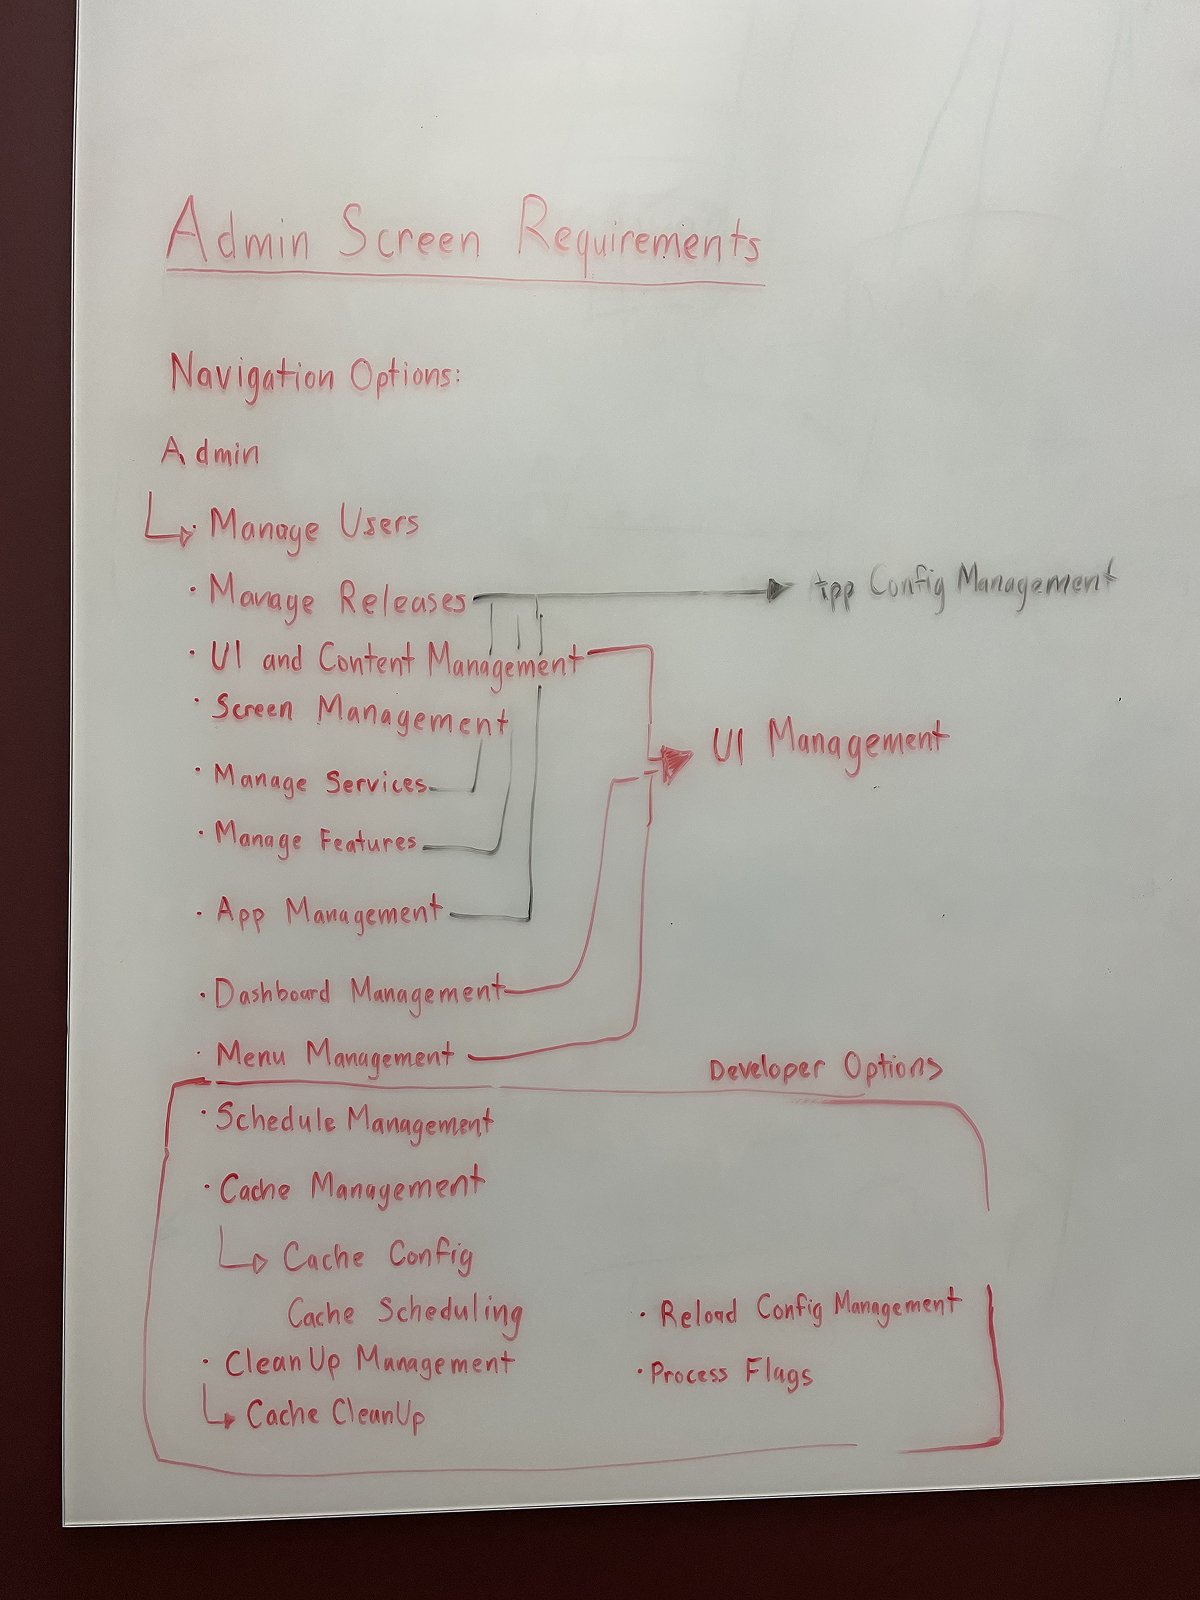 Admin Screen Requirements
Navigation Options:
Admin
· Manage Users
· Manage Releases
App Config Management
· UI and Content Management
· Screen Management
UI Management
· Manage Services
· Manage Features
· App Management
· Dashboard Management
· Menu Management
Developer Options
· Schedule Management
· Cache Management
Cache Config
Cache Scheduling
· CleanUp Management
Cache CleanUp
· Reload Config Management
· Process Flags